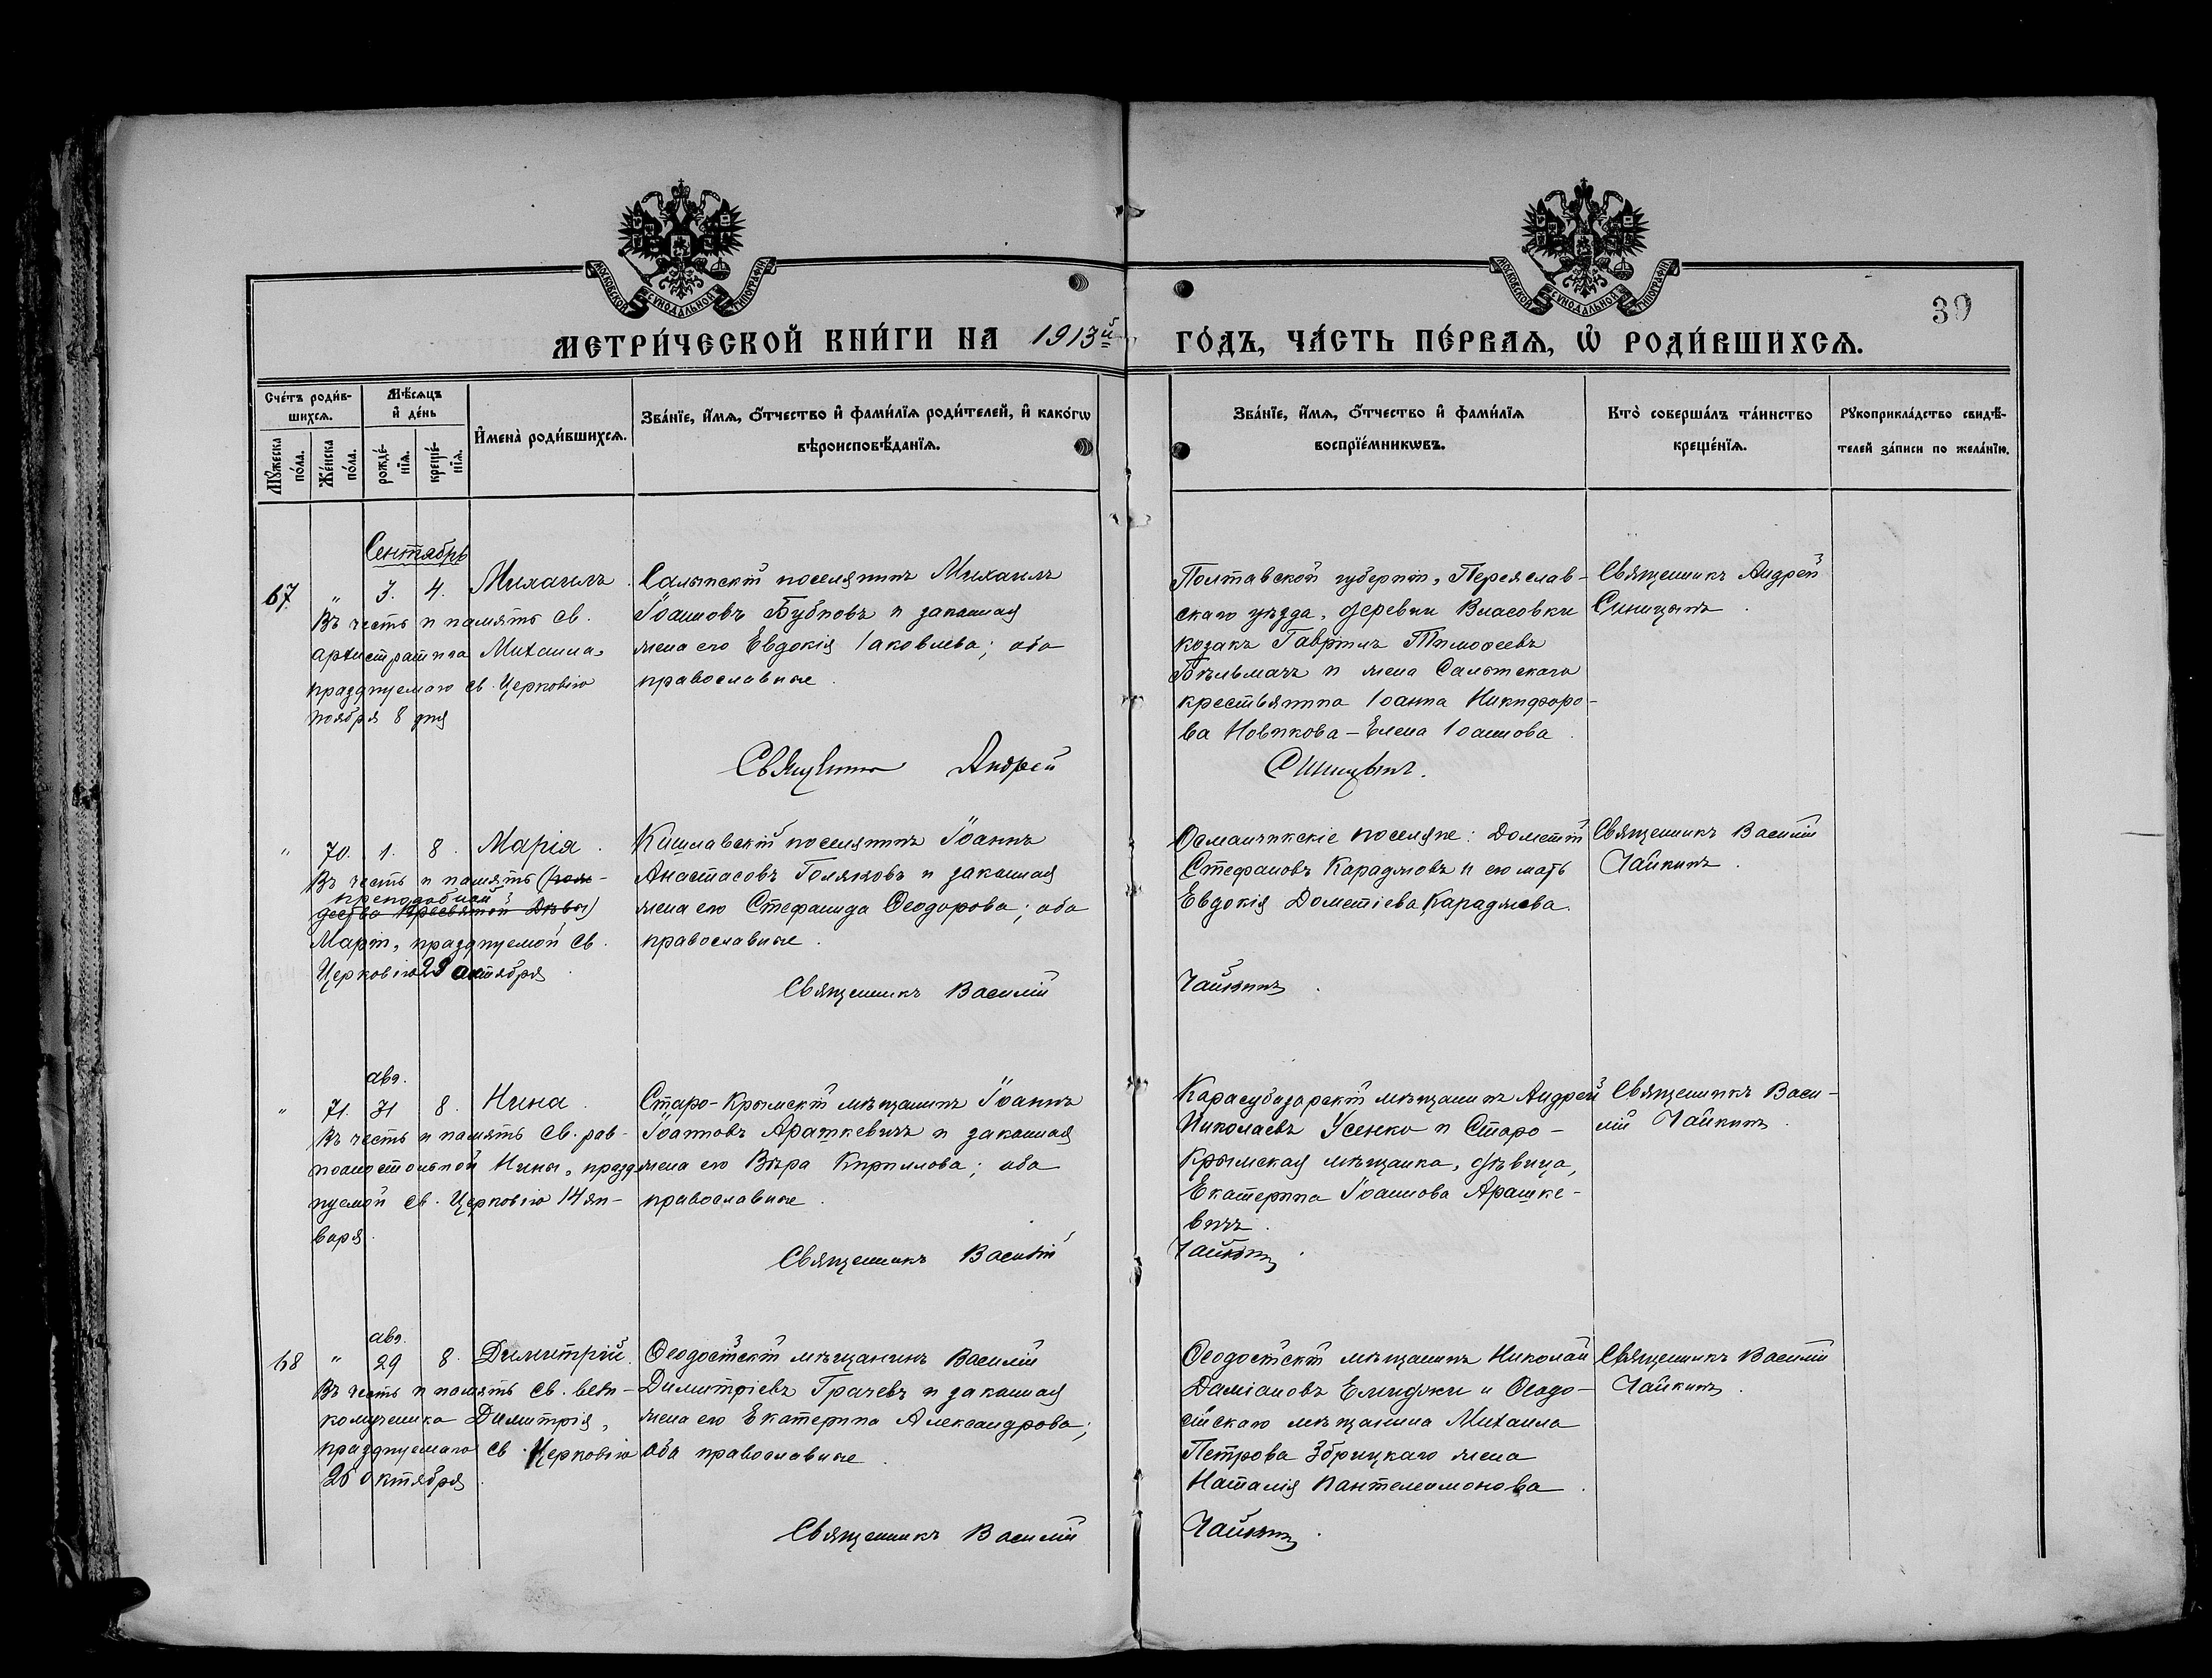 МОСКОВСКОЙ СѴНОДАЛЬНОЙ ТИПОГРАФІИ
МОСКОВСКОЙ СѴНОДАЛЬНОЙ ТИПОГРАФІИ
39
МЕТРИ́ЧЕСКОЙ КНИ́ГИ НА 1913й ГО́ДЪ, ЧА́СТЬ ПЕ́РВАѦ, Ѽ РОДИ́ВШИХСѦ.
Сче́тъ роди́в-
шихсѧ.
Мꙋ́жеска по́ла.
Же́нска по́ла.
Мѣ́сѧцъ
и҆ де́нь
рожде́-
нїѧ.
креще́-
нїѧ.
И҆мена̀ роди́вшихсѧ.
Зва́нїе, и҆́мѧ, ѻ҆́тчество и҆ фами́лїѧ роди́телей, и҆ како́гѡ
вѣроисповѣ́данїѧ.
Зва́нїе, и҆́мѧ, ѻ҆́тчество и҆ фами́лїѧ
воспрїе́мникѡвъ.
Кто̀ соверша́лъ та́инство
креще́нїѧ.
Рꙋкоприкла́дство свидѣ́-
телей за́писи по жела́нїю.
Сентябрь
67. " 3. 4. Михаилъ
Въ честь и память св.
архистратига Михаила,
празднуемаго св. Церковію
ноября 8 дня
Салынскій поселянинъ Михаилъ
Іоанновъ Бубновъ и законная
жена его Евдокія Іаковлева; оба
православные.
Священникъ Андрей
Полтавской губерніи, Переяслав-
скаго уѣзда, деревни Власовки
козакъ Гавріилъ Тимоѳеевъ
Бѣльмачъ и жена Салынскаго
крестьянина Іоанна Никифоро-
ва Новикова – Елена Іоаннова.
Синицынъ.
Священникъ Андрей
Синицынъ.
" 70. 1. 8. Марія.
Въ честь и память (рож-
преподобной
дества Пресвятой Дѣвы)
Маріи, празднуемой св.
Церковію 29 октября.
Кишлавскій поселянинъ Іоаннъ
Анастасовъ Поляковъ и законная
жена его Стефанида Ѳеодорова; оба
православные.
Священникъ Василій
Османчикскіе поселяне: Дометій
Стефановъ Караджовъ и его мать
Евдокія Дометіева Караджева.
Чайкинъ.
Священникъ Василій
Чайкинъ.
авг.
" 71. 31 8. Нина.
Въ честь и память св. рав-
ноапостольной Нины, празд-
нуемой св. Церковію 14 ян-
варя.
Старо-Крымскій мѣщанинъ Іоаннъ
Іоанновъ Арашкевичъ и законная
жена его Вѣра Кириллова; оба
православные.
Священникъ Василій
Карасубазарскій мѣщанинъ Андрей
Николаевъ Усенко и Старо-
Крымская мѣщанка, дѣвица,
Екатерина Іоаннова Арашке-
вичъ.
Чайкинъ.
Священникъ Васи-
лій Чайкинъ.
авг.
68 " 29 8. Димитрій.
Въ честь и память св. вели-
комученика Димитрія,
празднуемаго св. Церковію
26 октября.
Ѳеодосійскій мѣщанинъ Василій
Димитріевъ Грачевъ и законная
жена его Екатерина Александрова;
оба православные.
Священникъ Василій
Ѳеодосійскій мѣщанинъ Николай
Даміановъ Елиджи и Ѳеодо-
сійскаго мѣщанина Михаила
Петрова Збрицкаго жена
Наталія Пантелеимонова.
Чайкинъ.
Священникъ Василій
Чайкинъ.